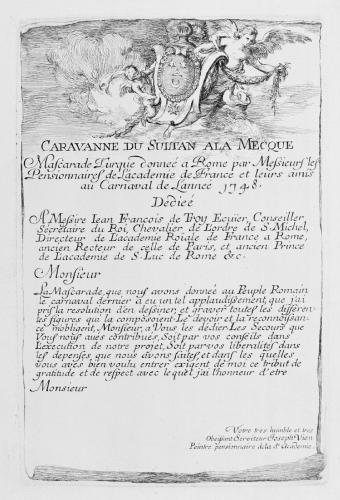 CARAVANNE DU SULTAN A LA MECQUE
Mascarade Turque donneé a Rome par Messieurs les
Pensionnaires de L'academie de France et leurs amis
au Carnaval de L'anneé 1748.
Dedieé
A Messire Iean François de Troy Ecuier, Conseiller
Secrétaire du Roi, Chevalier de L'ordre de S. Michel,
Directeur de L'academie Roiale de France a Rome,
ancien Recteur de celle de Paris, et ancien Prince
de L'academie de S. Luc de Rome &c.
Monsieur
La Mascarade que nous avons donneé au Peuple Romain
le carnaval dernier a eu un tel applaudissement, que j'ai
pris la resolution d'en dessiner, et graver toutes les differen-
tes figures qui la composoient. Le devoir et la reconnoissan-
ce m'obligent, Monsieur, a Vous les dédier. Les Secours que
Vous nous avés contribués, Soit par vos conseils dans
L'execution de notre projet, Soit par vos liberalités dans
les depenses que nous avons faites, et dans les quelles
vous avés bien voulu entrer exigent de moi ce tribut de
gratitude et de respect avec le quel j'ai l'honneur d'etre
Monsieur
Votre tres humble et tres
Obeissant Serviteur Ioseph Vien
Peintre pensionnaire de la de Academie